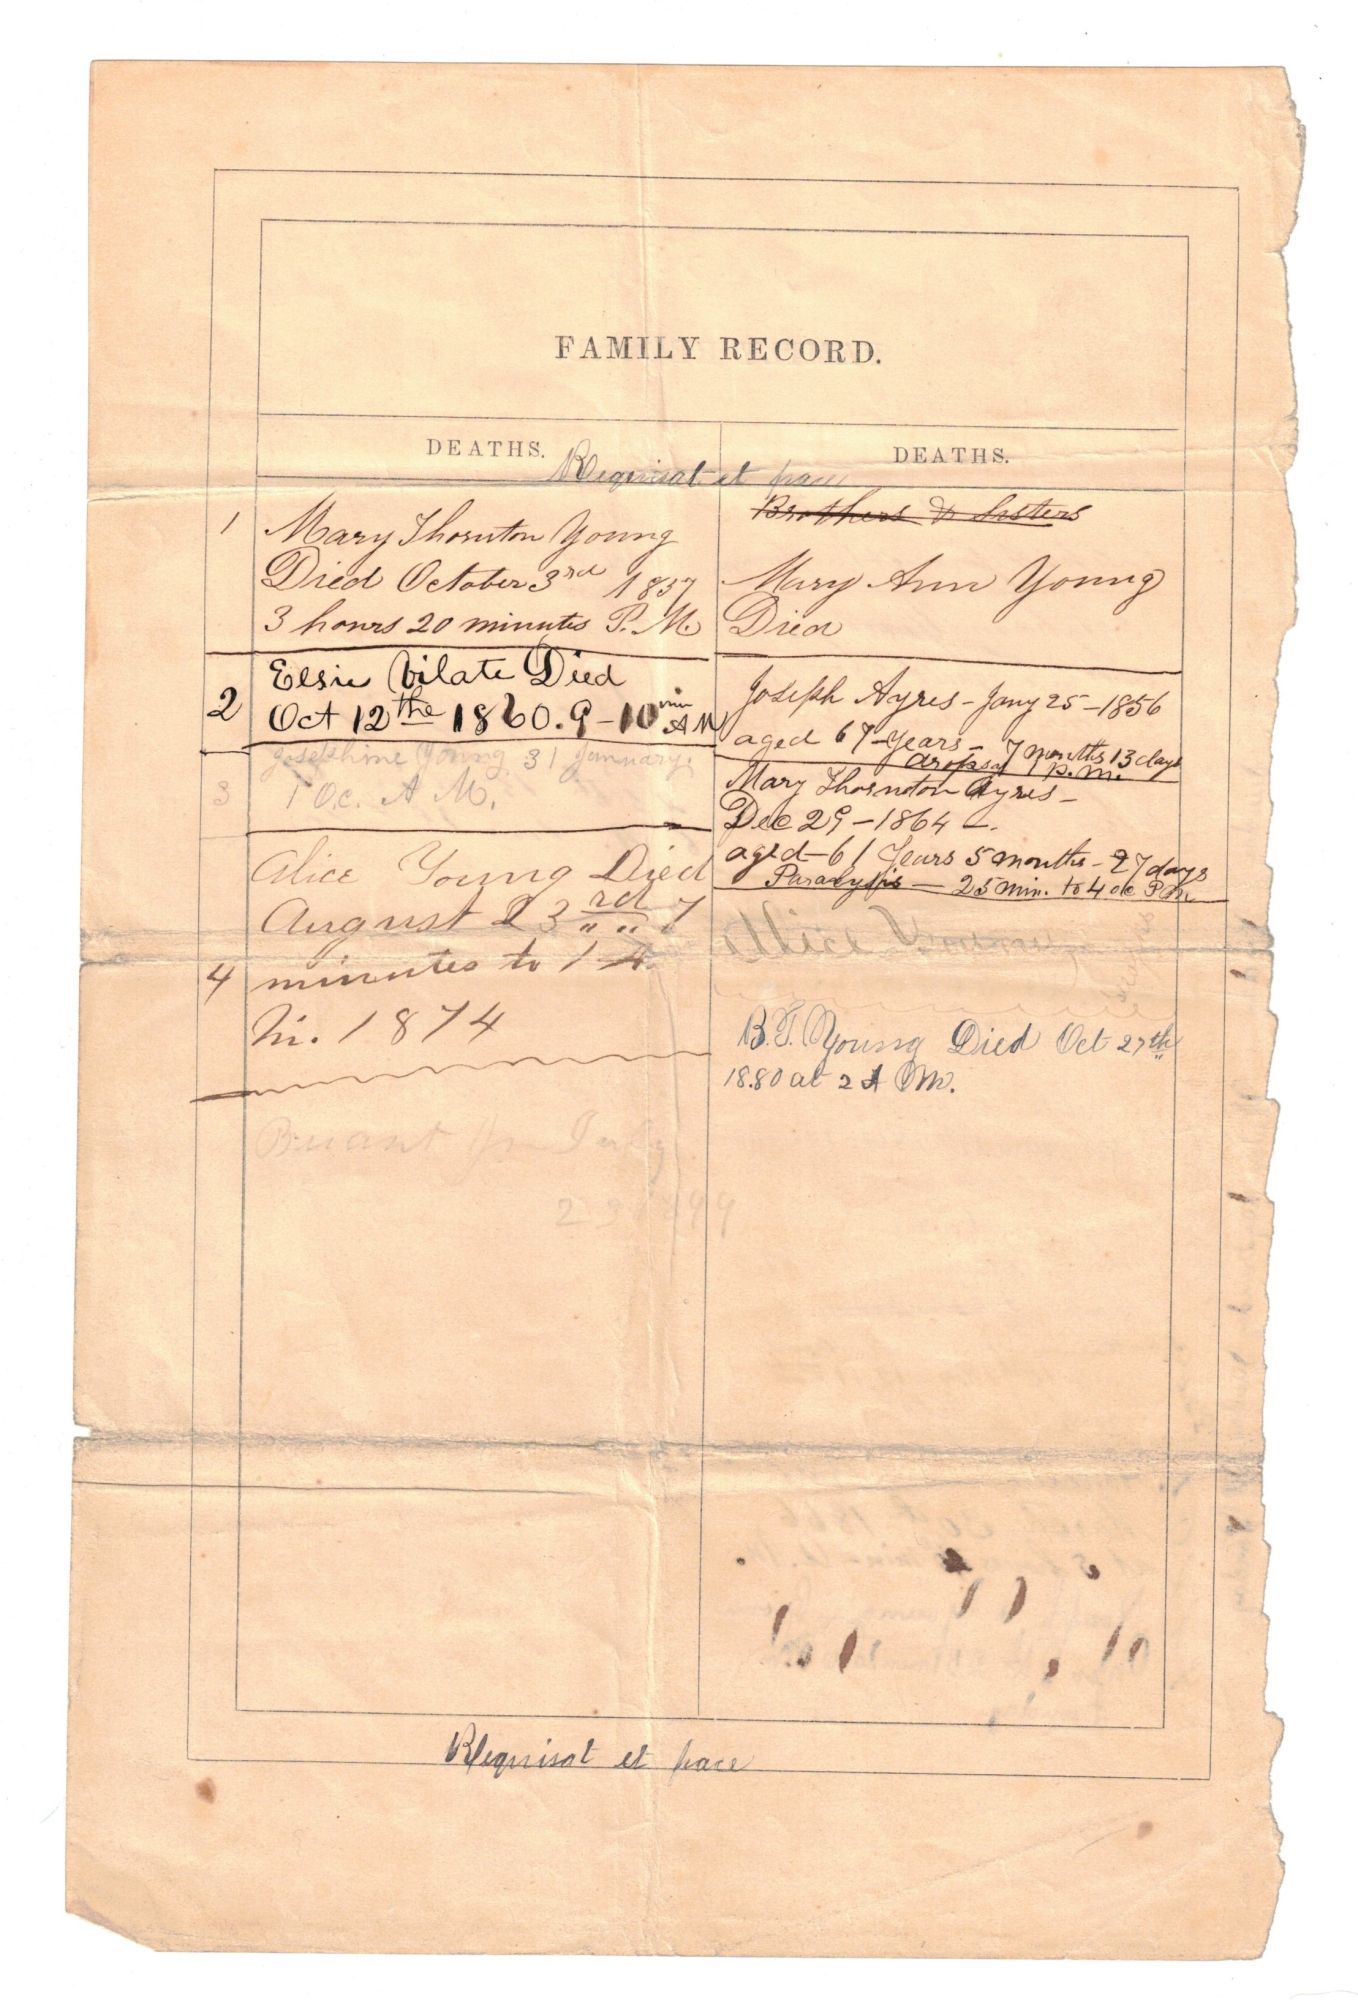 FAMILY RECORD.
DEATHS.
DEATHS.
Requisat et pace
1
Mary Thornton Young
Died October 3rd 1857
3 hours 20 minutes P.M.
2
Elsie Vilate Died
Oct 12the 1860. 9-10 min A M
3
Josephine Young 31 January.
1 Oc. A M.
4
Alice Young Died
August 23rd 7
minutes to 1
M. 1874
Brothers & Sisters
Mary Ann Young
Died
Joseph Ayres - Jany 25 - 1856
aged 67 years - 7 months 13 days
dropsy P.M.
Mary Thornton Ayres -
Dec 29 - 1864 -.
aged - 61 Years 5 months - 27 days
Paralysis - 25 min. to 4 oc P M
Alice Young
B.T. Young Died Oct 27th
1880 at 2 A M.
Requisat et pace